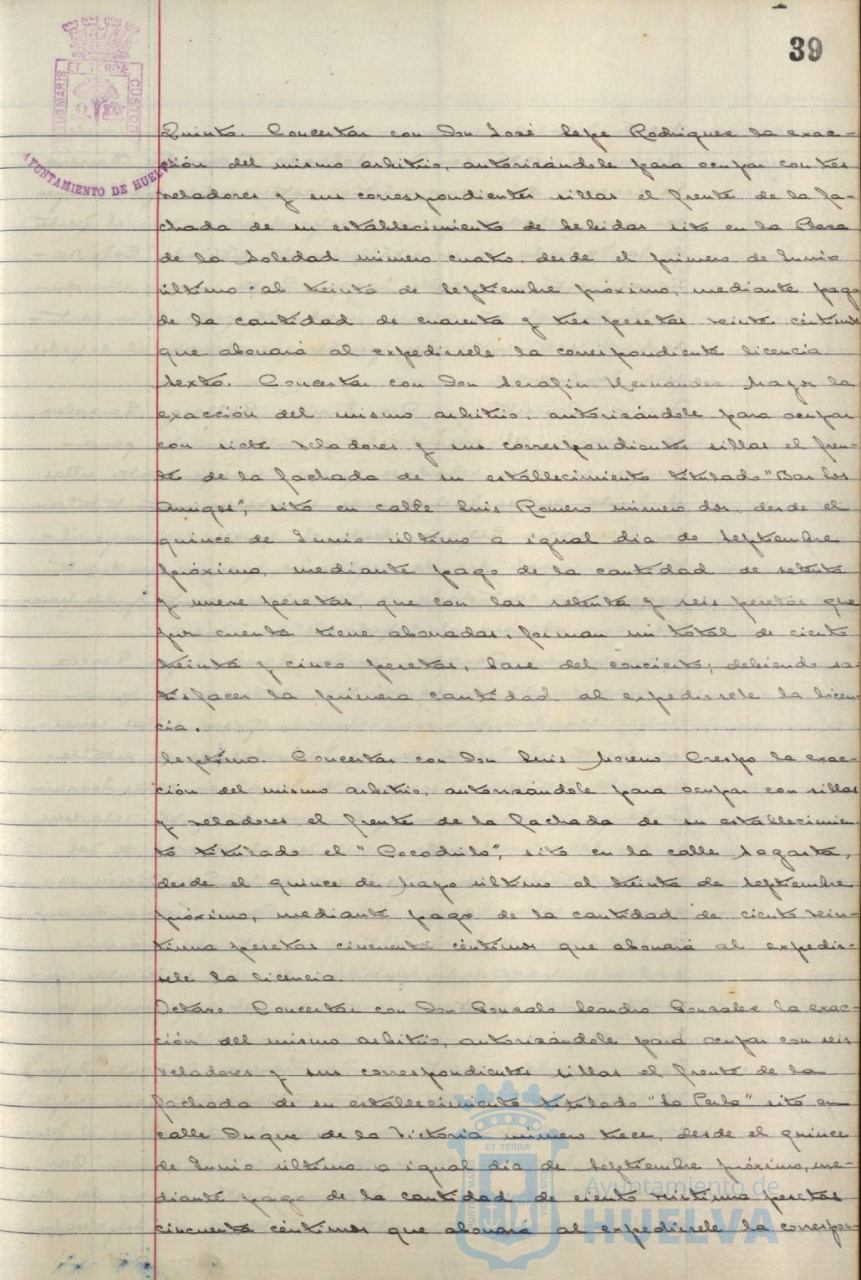 39
ET TERRÆ
US MARIS
CUSTOD
AYUNTAMIENTO DE HUELV
Quinto. Concertar con Don José Lepe Rodriguez la exac-
ción del mismo arbitrio, autorizándole para ocupar con tres
veladores y sus correspondientes sillas el frente de la fa-
chada de su establecimiento de bebidas sito en la Plaza
de la Soledad número cuatro, desde el primero de Junio
último al treinta de Septiembre próximo, mediante pago
de la cantidad de cuarenta y tres pesetas veinte céntimos
que abonará al expedírsele la correspondiente licencia.
Sexto. Concertar con Don Serafín Hernandez Mayor la
exacción del mismo arbitrio, autorizándole para ocupar
con siete veladores y sus correspondientes sillas el fren-
te de la fachada de su establecimiento titulado "Bar los
Amigos", sito en calle Luis Romero número dos, desde el
quince de Junio último a igual dia de Septiembre
próximo, mediante pago de la cantidad de setenta
y nueve pesetas, que con las setenta y seis pesetas que
por cuenta tiene abonadas, forman un total de ciento
treinta y cinco pesetas, base del concierto; debiendo sa-
tisfacer la primera cantidad al expedirsele la licen-
cia.
Septimo. Concertar con Don Luis Moreno Crespo la exac-
ción del mismo arbitrio, autorizándole para ocupar con sillas
y veladores el frente de la fachada de su establecimien-
to titulado el "Cocodrilo", sito en la calle Sagasta,
desde el quince de Mayo último al treinta de Septiembre
próximo, mediante pago de la cantidad de ciento vein-
tiuna pesetas cincuenta céntimos que abonará al expedir-
sele la licencia.
Octavo. Concertar con Don Gonzalo Leandro Gonzalez la exac-
ción del mismo arbitrio, autorizándole para ocupar con seis
veladores y sus correspondientes sillas el frente de la
fachada de su establecimiento titulado "La Perla" sito en
calle Duque de la Victoria número trece, desde el quince
de Junio último a igual dia de Septiembre próximo, me-
diante pago de la cantidad de ciento veintiuna pesetas
cincuenta céntimos que abonará al expedirsele la correspon-
ET TERRÆ
Ayuntamiento de
HUELVA